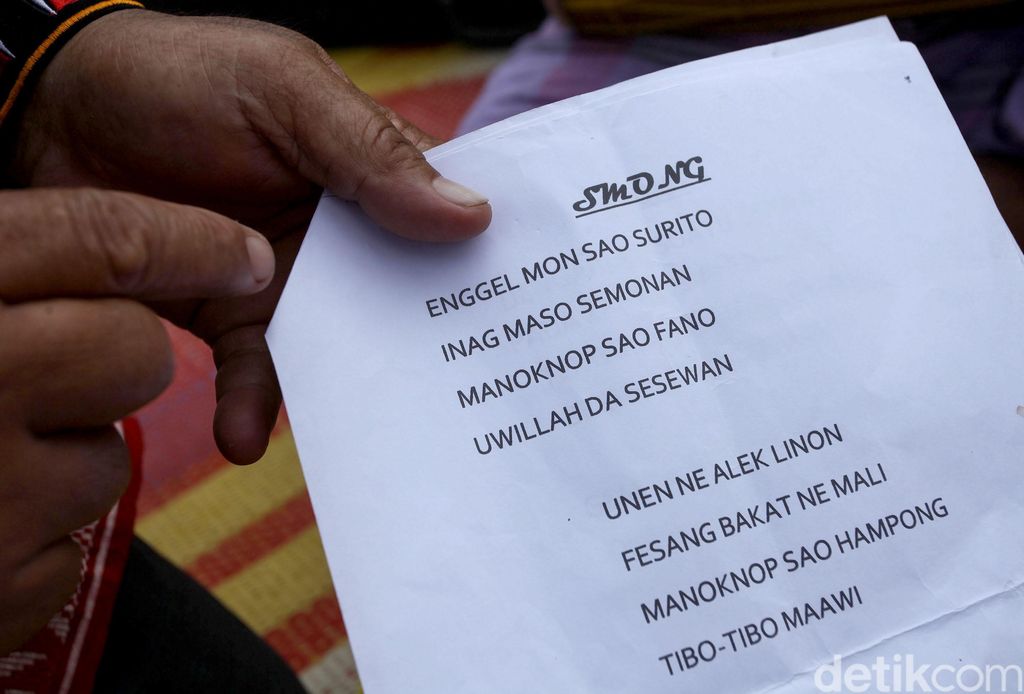 SMONG
ENGGEL MON SAO SURITO
INAG MASO SEMONAN
MANOKNOP SAO FANO
UWILLAH DA SESEWAN
UNEN NE ALEK LINON
FESANG BAKAT NE MALI
MANOKNOP SAO HAMPONG
TIBO-TIBO MAAWI
detikcom